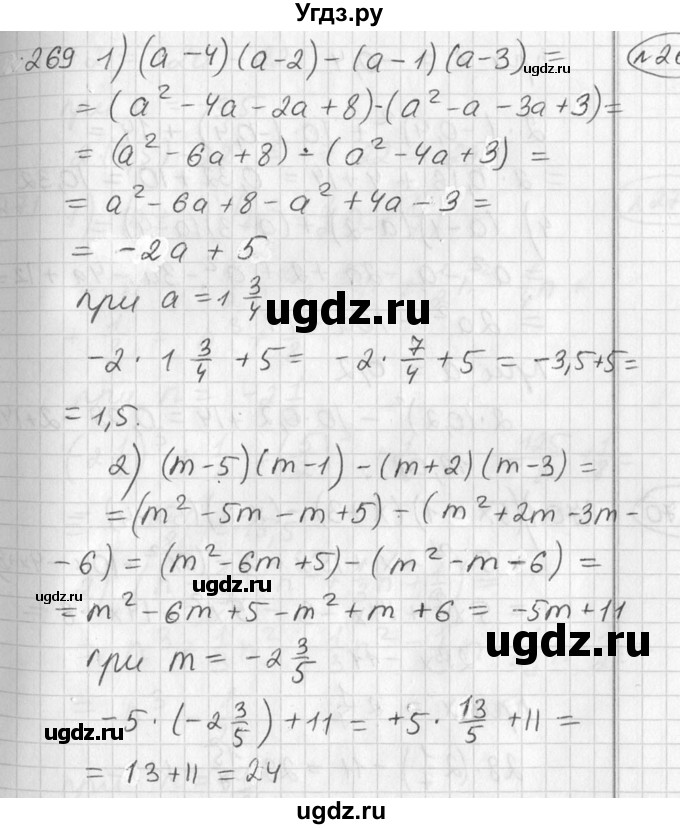 Угдз.ру
269 1) (a - 4)(a - 2) - (a - 1)(a - 3) =
= (a² - 4a - 2a + 8) - (a² - a - 3a + 3) =
= (a² - 6a + 8) - (a² - 4a + 3) =
= a² - 6a + 8 - a² + 4a - 3 =
= -2a + 5
при a = 1 3/4
ugdz.ru
-2 · 1 3/4 + 5 = -2 · 7/4 + 5 = -3,5 + 5 =
= 1,5.
2) (m - 5)(m - 1) - (m + 2)(m - 3) =
= (m² - 5m - m + 5) - (m² + 2m - 3m -
- 6) = (m² - 6m + 5) - (m² - m - 6) =
ugdz.ru
ugdz.ru
= m² - 6m + 5 - m² + m + 6 = -5m + 11
ugdz.ru
при m = -2 3/5
-5 · (-2 3/5) + 11 = +5 · 13/5 + 11 =
ugdz.ru
= 13 + 11 = 24
ugdz.ru